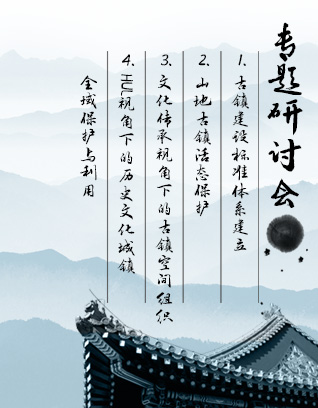 专题研讨会
1、古镇建设标准体系建立
2、山地古镇活态保护
3、文化传承视角下的古镇空间组织
4、HUL视角下的历史文化城镇
全域保护与利用